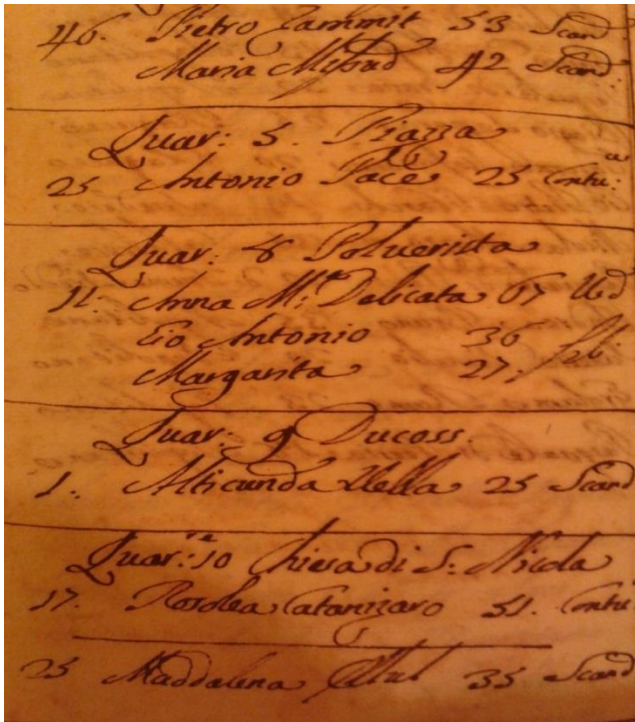 46. Pietro Zammit 53 Scand
Maria Mifsud 42 Scand:
Quar: 5. Piazza
25 Antonio Pace 25 Contu:
Quar: 8 Poluerista
11: Anna M:ª Delicata 67 Ved
Gio Antonio 36
Margarita 27. fili
Quar: 9 Ducoss.
1. Alticunda Vella 25 Scand
Quar:re 10 Chiesa di S: Nicola
17. Rosolea Catanizaro 51. Contu
25 Maddalena 35 Scand